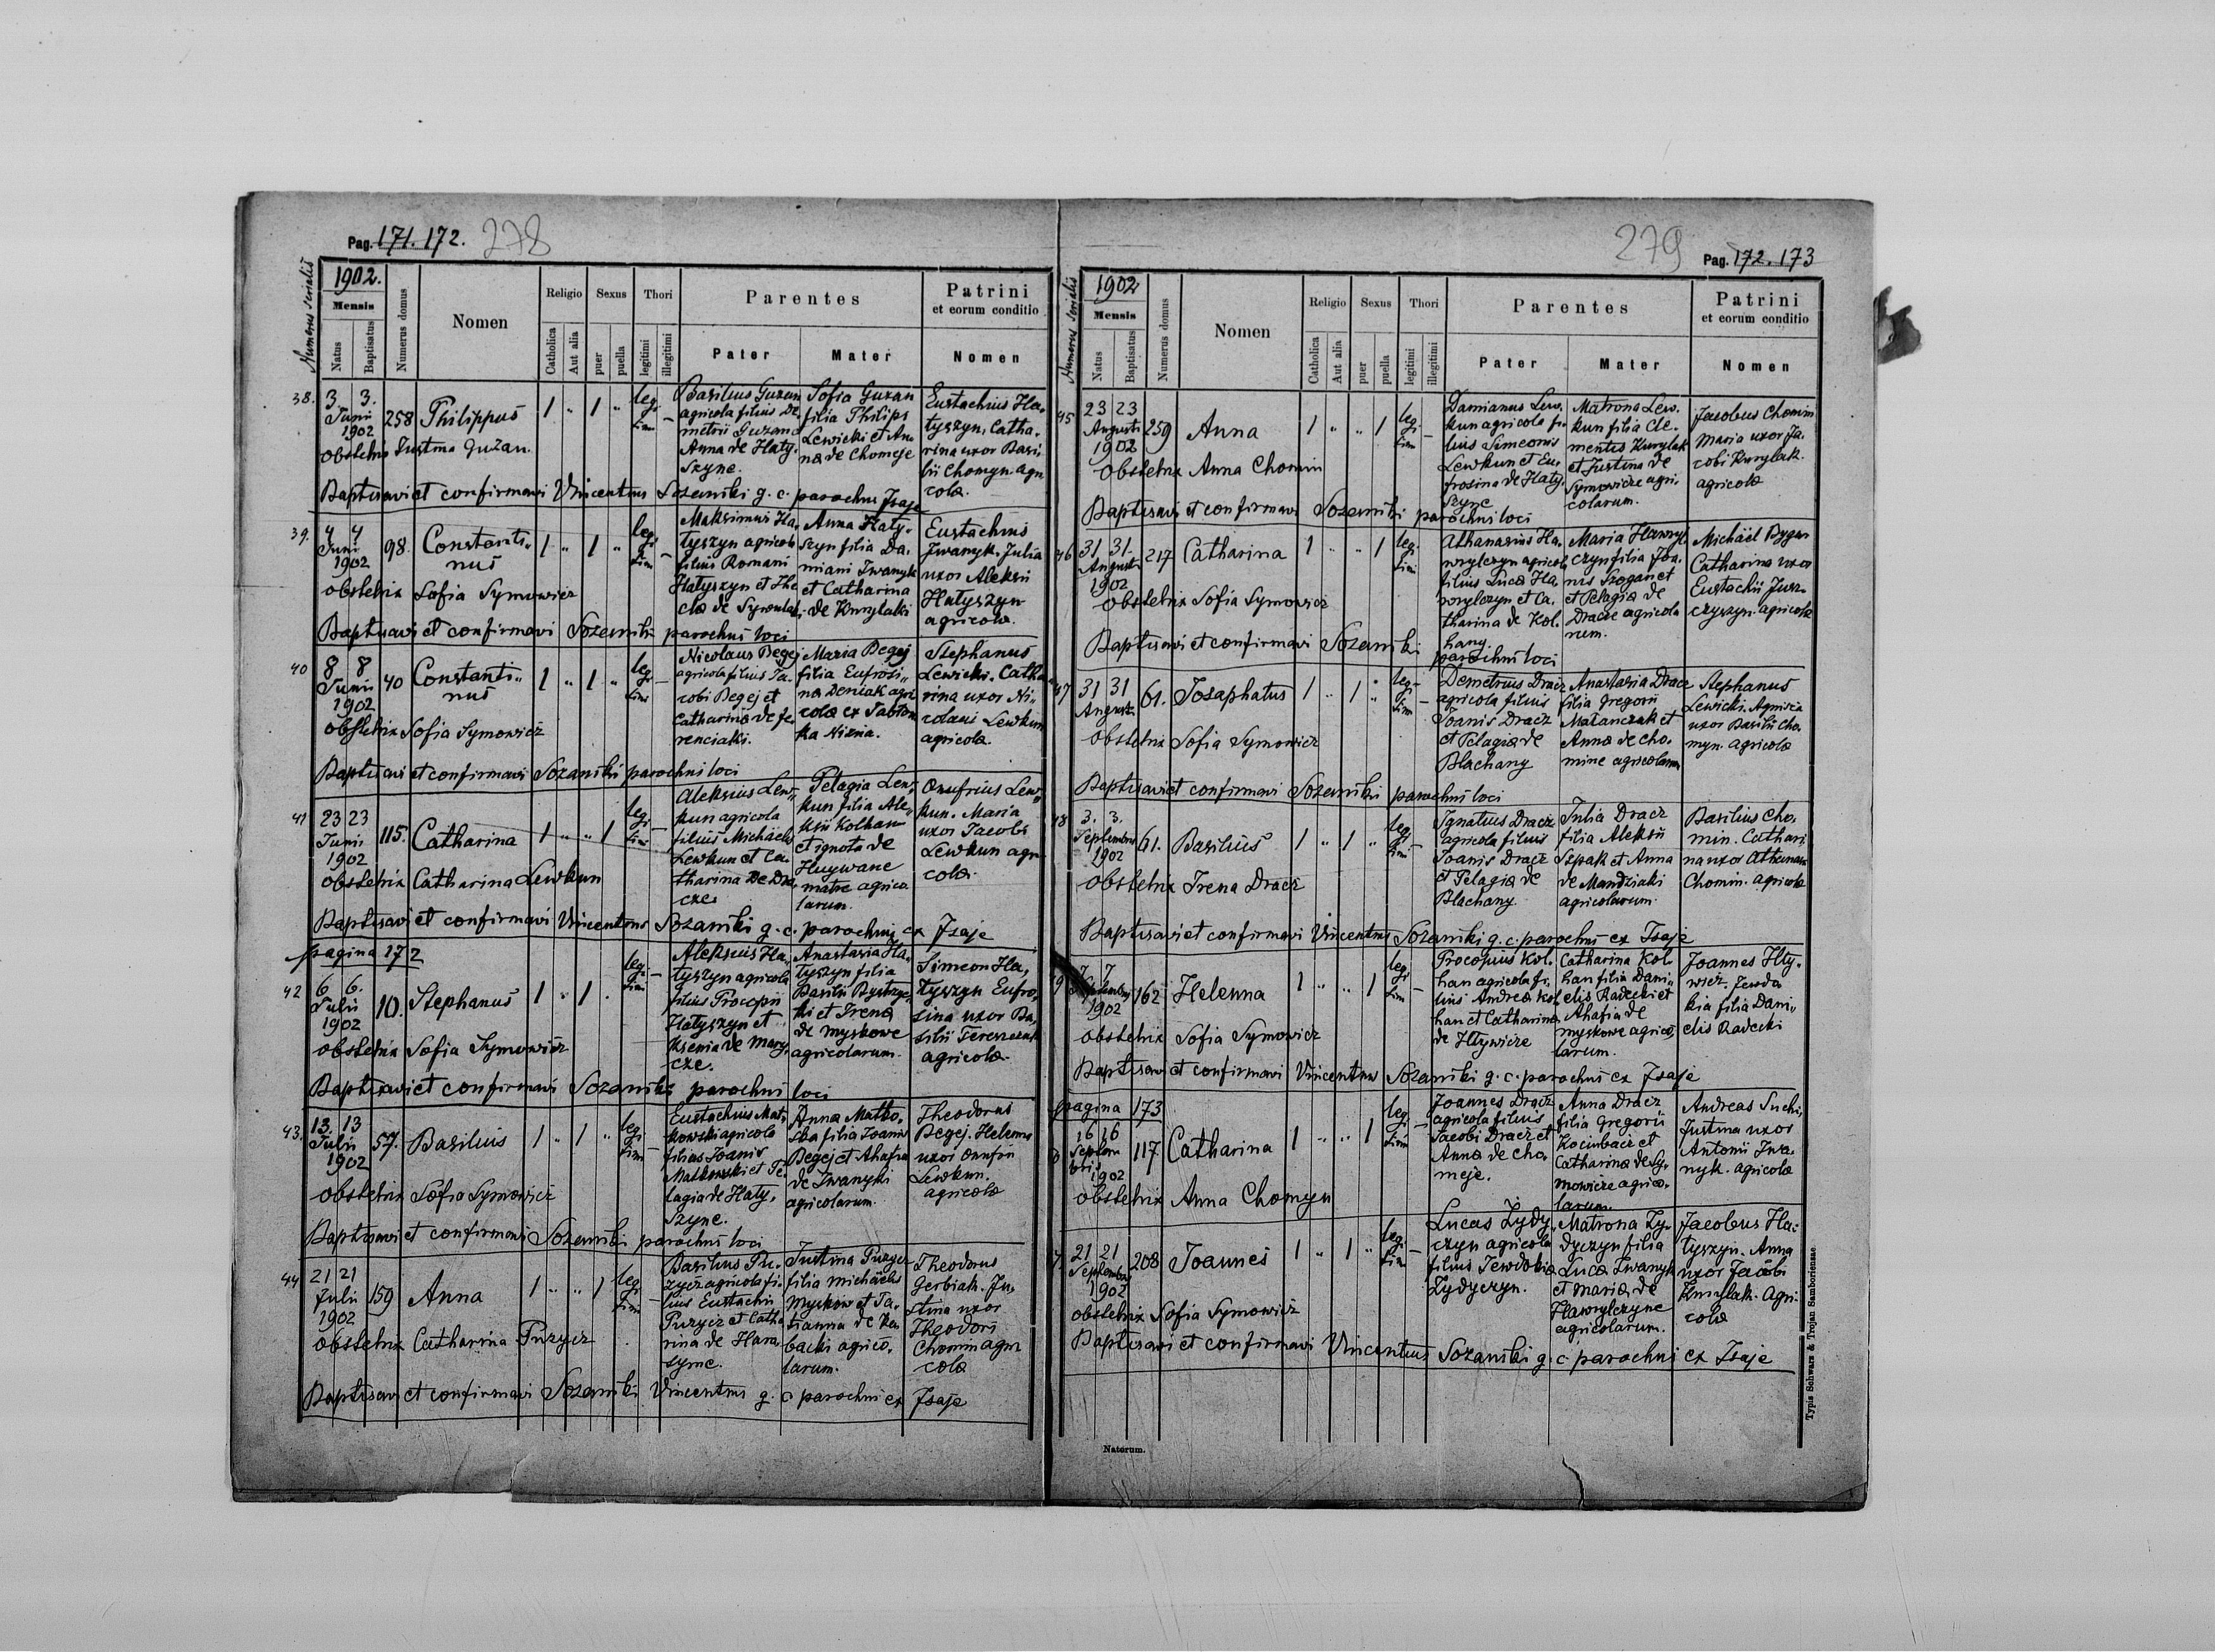 Pag. 171. 172. 278
Numerus serialis
1902.
Mensis
Natus
Baptisatus
Numerus domus
Nomen
Religio
Catholica
Aut alia
Sexus
puer
puella
Thori
legitimi
illegitimi
Parentes
Pater
Mater
Patrini
et eorum conditio
Nomen
38.
3. 3.
Junii
1902
258
Philippus
1 " 1 "
legi
timi
Basilius Guzan
agricola filius De-
metrii Guzan et
Anna de Haty-
szyne.
Sofia Guzan
filia Philipi
Lewicki et An-
na de Chomeje
Eustachius Ha-
tyszyn, Catha-
rina uxor Basi-
lii Chomyn. agri
cola.
Obstetrix Justina Guzan.
Baptisavi et confirmavi Vincentius Sozański g. c. parochus Isaje
39.
4 4
Junii
1902
98.
Constanti-
nus
1 " 1 "
legi
timi
Maksimus Ha-
tyszyn agricola
filius Romani
Hatyszyn et The
cla de
Anna Haty-
szyn filia Da-
miani Iwanyk
et Catharina
de Kurylaki
Eustachius
Iwanyk. Julia
uxor Aleksii
Hatyszyn
agricola.
obstetrix Sofia Symowicz
Baptisavi et confirmavi Sozański parochus loci
40
8 8
Junii
1902
40
Constanti-
nus
1 " 1 "
legi
timi
Nicolaus Begej
agricola filius Ja-
cobi Begej et
Catharina de Je-
renciaki.
Maria Begej
filia Eufrosi-
na Deniak agri
cola ex Jabłon
ka Niżna.
Stephanus
Lewicki. Catha
rina uxor Ni-
colaui Lewkun
agricola.
obstetrix Sofia Symowicz
Baptisavi et confirmavi Sozański parochus loci
41
23 23
Junii
1902
115.
Catharina
1 " " 1
legi
timi
Aleksius Lew-
kun agricola
filius Michaelis
Lewkun et Ca-
tharina de Dra-
cze
Pelagia Lew-
kun filia Ale-
ksii Kolhan
et ignota de
matre agrico
larum.
Onufrius Lew-
kun. Maria
uxor Jacobi
Lewkun agri
cola.
obstetrix Catharina Lewkun
Baptisavi et confirmavi Vincentius Sozański g. c. parochus ex Isaje
pagina 172
42
6 6.
Julii
1902
10.
Stephanus
1 " 1 .
legi
timi
Aleksius Ha-
tyszyn agricola
filius Procopii
Hatyszyn et
Ksenia de Mary-
cze.
Anastasia Ha-
tyszyn filia
Basilii Bystrzyc-
ki et Irena
de Myskowe
agricolarum.
Simeon Ha-
tyszyn Eufro-
sina uxor Ba-
silii
agricola.
obstetrix Sofia Symowicz
Baptisavi et confirmavi Sozański parochus loci
43.
13. 13
Julii
1902
57.
Basilius
1 " 1 "
legi
timi
Eustachius Mat-
kowski agricola
filius Joanis
Matkowski et Pe-
lagia de Haty-
szyne.
Anna Matko-
ska filia Joanis
Begej et Ahafia
de Iwanyki
agricolarum.
Theodorus
Begej. Helena
uxor Onufrii
Lewkun.
agricola
obstetrix Sofia Symowicz
Baptisavi et confirmavi Sozański parochus loci
44
21 21
Julii
1902
159
Anna
1 " " 1
legi
timi
Basilius Pu-
zycz agricola fi-
lius Eustachii
Puzycz et Catha
rina de Hara-
syme.
Justina Puzycz
filia Michaelis
Myskow et Ta-
tianna de Ka
backi agrico-
larum.
Theodorus
Gerbiak. Ju-
stina uxor
Theodori
Chomin agri
cola
obstetrix Catharina Puzycz
Baptisavi et confirmavi Sozański Vincentius g. c parochus ex Isaje
279 Pag. 172. 173
Numerus serialis
1902
Mensis
Natus
Baptisatus
Numerus domus
Nomen
Religio
Catholica
Aut alia
Sexus
puer
puella
Thori
legitimi
illegitimi
Parentes
Pater
Mater
Patrini
et eorum conditio
Nomen
45
23 23
Augusti
1902
259
Anna
1 " " 1
legi
timi
Damianus Lew-
kun agricola fi-
lius Simeonis
Lewkun et Eu-
frosina de Haty-
szyne
Matrona Lew-
kun filia Cle-
mentis Kurylak
et Justina de
Symowicze agri-
colarum.
Jacobus Chomin
Maria uxor Ja-
cobi Kurylak.
agricola
Obstetrix Anna Chomin
Baptisavi et confirmavi Sozański parochus loci
46
31 31.
Augusti
1902
217
Catharina
1 " " 1
legi
timi
Athanasius Ha-
wrylczyn agricola
filius Luca Ha-
wrylczyn et Ca-
tharina de Kol-
hany.
Maria Hawryl
czyn filia Joa-
nis Szagan et
et Pelagia de
Dracze agricola
rum.
Michael Dygan
Catharina uxor
Eustachii Jusz-
czyszyn. agricola
Obstetrix Sofia Symowicz
Baptisavi et confirmavi Sozański parochus loci
47
31 31
Augusti
61.
Josaphatus
1 " 1 "
legi
timi
Demetrius Dracz
agricola filius
Joanis Dracz
et Pelagia de
Blachany
Anastasia Dracz
filia Gregorii
Matanczak et
Anna de Cho-
mine agricolarum
Stephanus
Lewicki. Agnisia
uxor Basilii Cho-
myn. agricola
Obstetrix Sofia Symowicz
Baptisavi et confirmavi Sozański parochus loci
48
3. 3.
Septembris
1902
61.
Basilius
1 " 1 "
legi
timi
Ignatius Dracz
agricola filius
Joanis Dracz
et Pelagia de
Blachany
Julia Dracz
filia Aleksii
Szpak et Anna
de Mandziaki
agricolarum.
Basilius Cho-
min. Cathari
na uxor Athanasii
Chomin. agricola
Obstetrix Irena Dracz
Baptisavi et confirmavi Vincentius Sozański g. c. parochus ex Isaje
49
7 7
1902
162
Helenna
1 " " 1
legi
timi
Procopius Kol-
han agricola fi-
lius Andrea Kol
han et Catharina
de Iltywicze
Catharina Kol
han filia Dani-
elis Radecki et
Ahafia de
Myskowe agrico-
larum.
Joannes Ilty-
wicz. Jewdo
kia filia Dani-
elis Radecki
obstetrix Sofia Symowicz
Baptisavi et confirmavi Vincentius Sozański g. c. parochus ex Isaje
pagina 173
16 16
Septem
bris
1902
117
Catharina
1 " " 1
legi
timi
Joannes Dracz
agricola filius
Jacobi Dracz et
Anna de Cho-
meje.
Anna Dracz
filia Gregorii
Kocimbacz et
Catharina de Sy-
mowicze agrico-
larum.
Andreas Suchi,
Justina uxor
Antonii Iwa-
nyk. agricola
obstetrix Anna Chomyn
21 21
Septembris
1902
208
Joannes
1 " 1 "
legi
timi
Lucas Żydy-
czyn agricola
filius Jewdokia
Żydyczyn.
Matrona Ży-
dyczyn filia
Luca Iwanyk
et Maria de
Hawrylczyne
agricolarum.
Jacobus Ha-
tyszyn. Anna
uxor Jacobi
Kurylak. Agri-
cola
obstetrix Sofia Symowicz
Baptisavi et confirmavi Vincentius Sozański g. c parochus ex Isaje
Natorum.
Typis Schwarz & Trojan Samboriensae